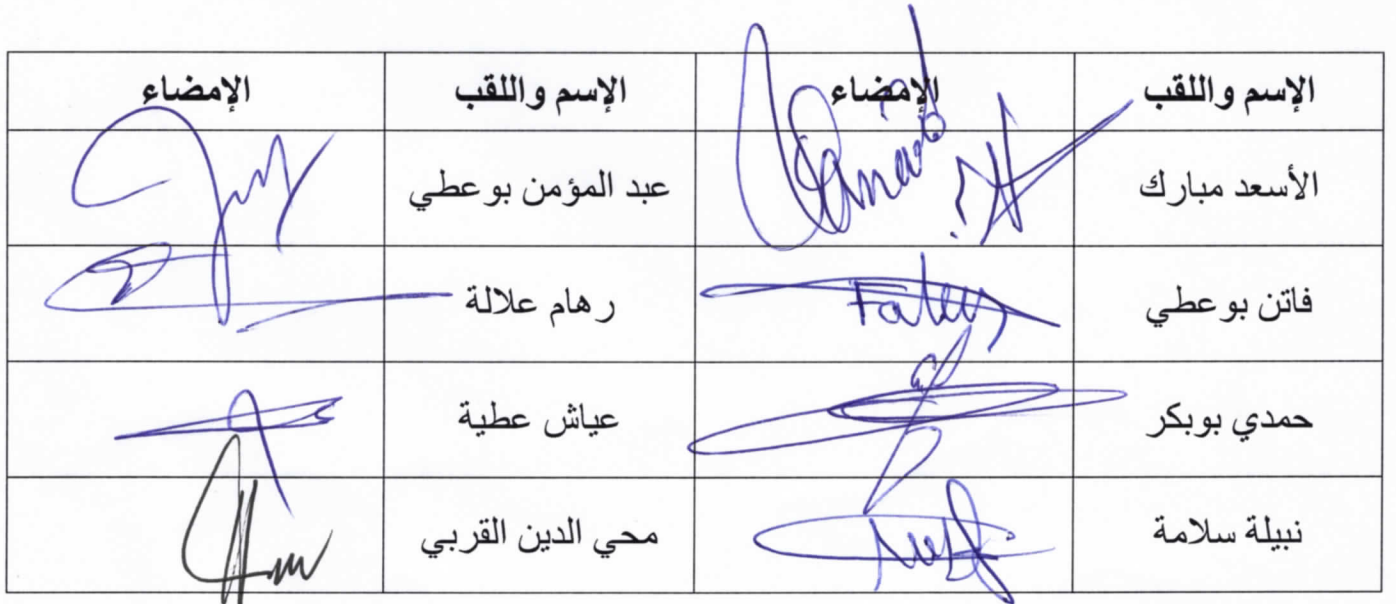 الإسم واللقب الإمضاء الإسم واللقب الإمضاء
الأسعد مبارك عبد المؤمن بوعطي
فاتن بوعطي Faten رهام علالة
حمدي بوبكر عياش عطية
نبيلة سلامة محي الدين القربي